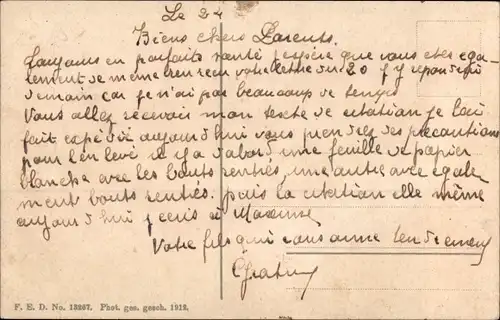 Le 24
Biens chers Parents.
Toujours en parfaite santé j'espère que vous etes ega-
lement de meme bien reçu votre lettre du 20 j'y repondrai
demain car je n'ai pas beaucoup de temps
Vous allez recevoir mon texte de citation je l'ai
fait expédié aujourd hui vous prendrez des precautions
pour l'enlevé il y a d'abord une feuille de papier
blanche avec les bouts rentrés, une autre avec egale
ment bouts rentrés. puis la citation elle même
aujourd hui j'ecris à Maxence
Votre fils qui vous aime tendrement
F. E. D. No. 13267. Phot. ges. gesch. 1912.